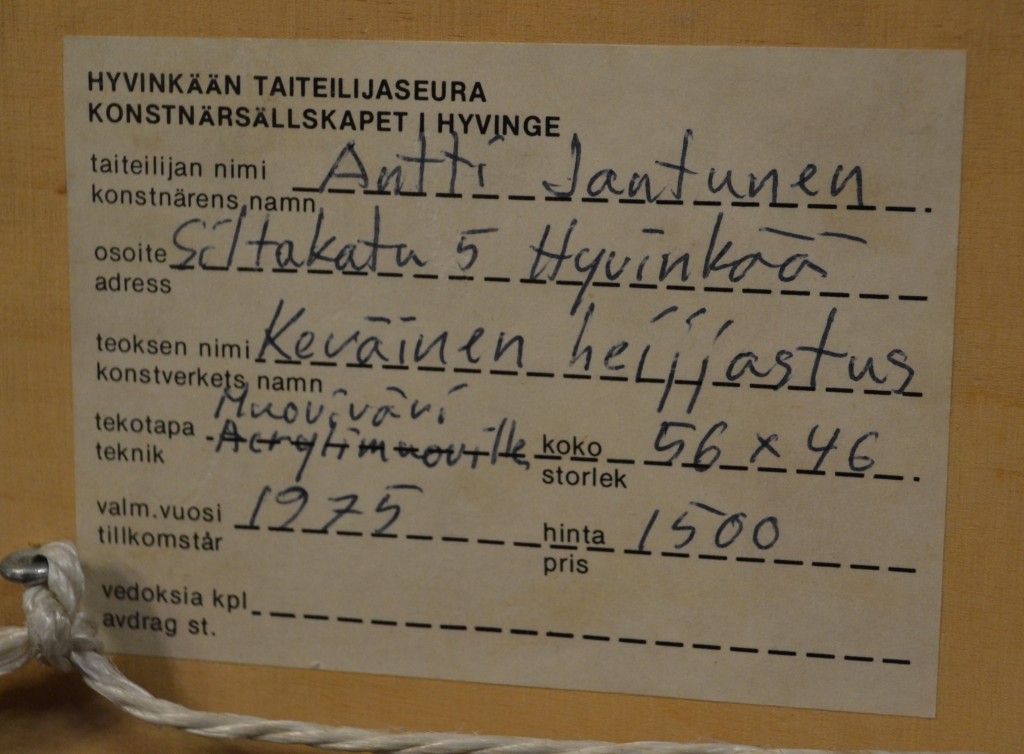 HYVINKÄÄN TAITEILIJASEURA
KONSTNÄRSÄLLSKAPET I HYVINGE
taiteilijan nimi Antti Jantunen
konstnärens namn
osoite Siltakatu 5 Hyvinkää
adress
teoksen nimi Keväinen heijjastus
konstverkets namn
Muoviväri
tekotapa Acrylimuoville koko 56 x 46
teknik storlek
valm.vuosi 1975 hinta 1500
tillkomstår pris
vedoksia kpl
avdrag st.